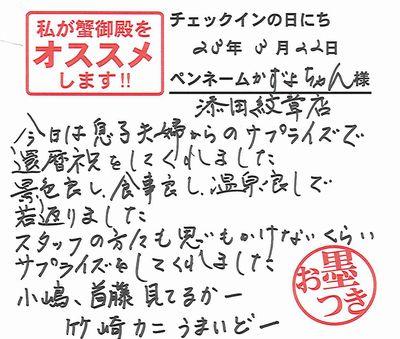 私が蟹御殿を
オススメ
します!!
チェックインの日にち
28年3月22日
ペンネームかずよちゃん様
添田紋章店
今日は息子夫婦からのサプライズで
還暦祝をしてくれました
景色良し、食事良し、温泉良しで
若返りました
スタッフの方々も思いもかけないくらい
サプライズをしてくれました
小嶋、首藤見てるかー
竹崎カニうまいどー
お墨つき